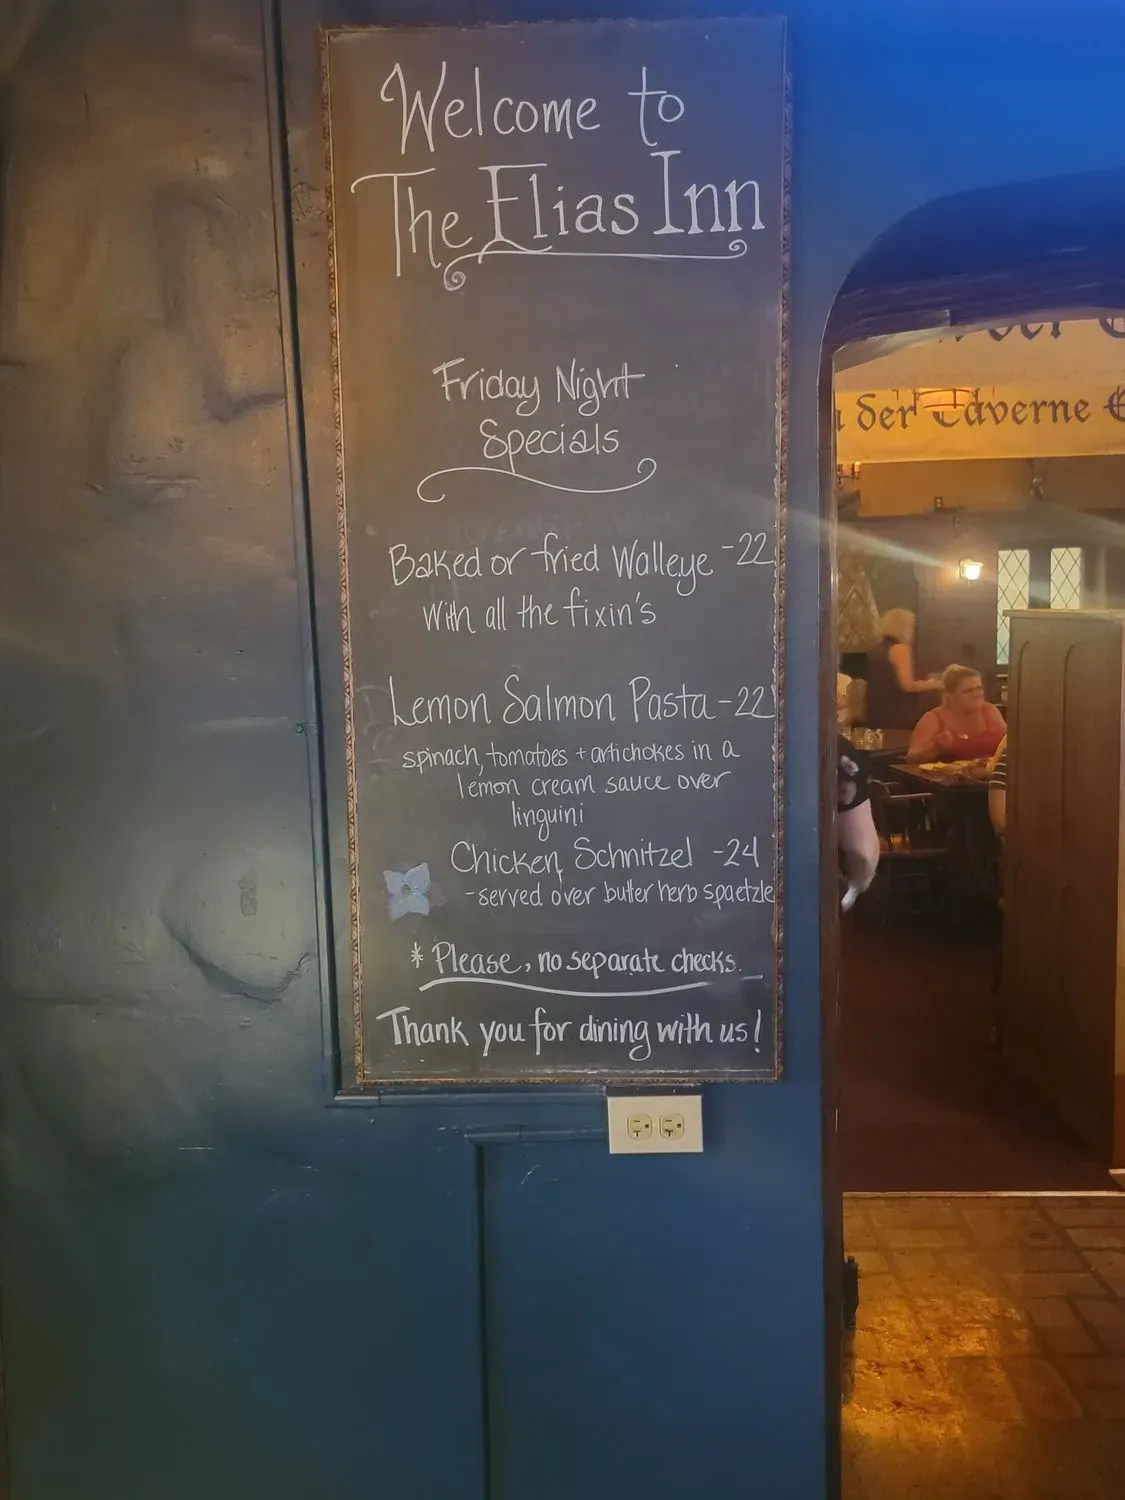 Welcome to
The Elias Inn
Friday Night
Specials
Baked or fried Walleye -22
with all the fixin's
Lemon Salmon Pasta -22
spinach, tomatoes + artichokes in a
lemon cream sauce over
linguini
Chicken Schnitzel -24
-served over butter herb spaetzle
* Please, no separate checks.
Thank you for dining with us!
der
der Taverne